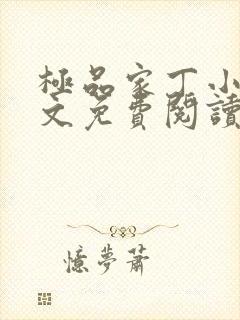 極品家丁小
文免費閱讀
憶夢蕭